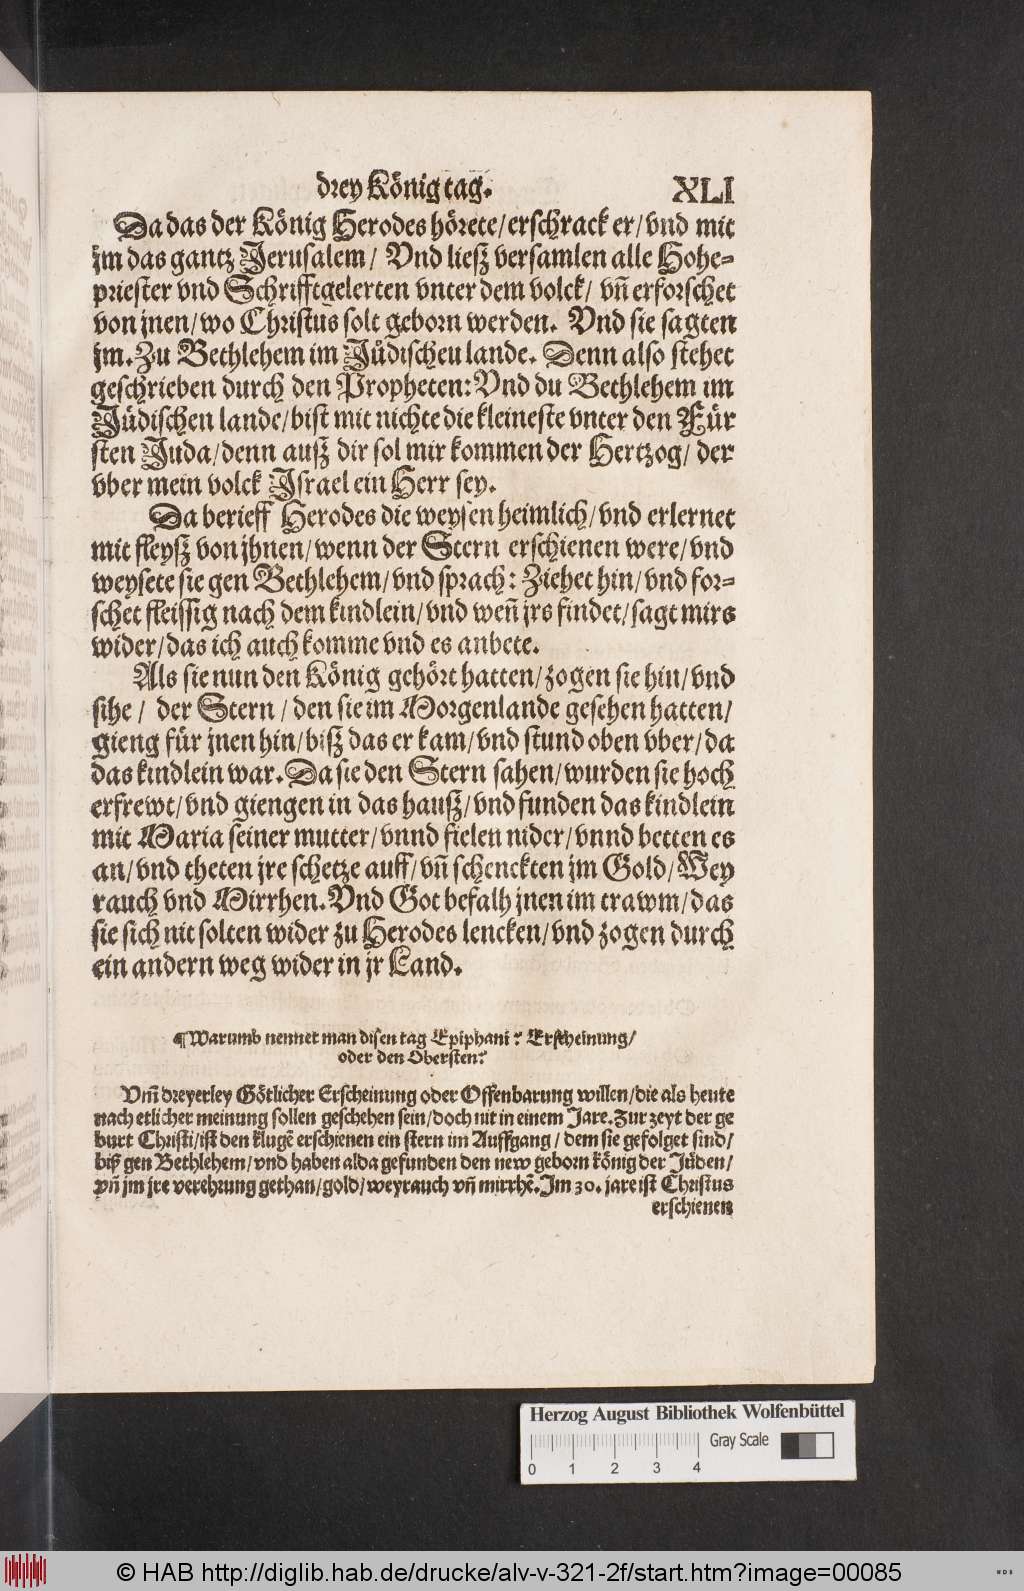 drey König tag. XLI
Da das der König Herodes hörete/erschrack er/vnd mit
jm das gantz Jerusalem/ Vnd ließ versamlen alle Hohe-
priester vnd Schrifftgelerten vnter dem volck/ vñ erforschet
von jnen/wo Christus solt geborn werden. Vnd sie sagten
jm. Zu Bethlehem im Jüdischeu lande. Denn also stehet
geschrieben durch den Propheten: Vnd du Bethlehem im
Jüdischen lande/bist mit nichte die kleineste vnter den Für
sten Juda/denn auß dir sol mir kommen der Hertzog/ der
vber mein volck Israel ein Herr sey.
Da berieff Herodes die weysen heimlich/vnd erlernet
mit fleyß von jhnen/wenn der Stern erschienen were/vnd
weysete sie gen Bethlehem/vnd sprach: Ziehet hin/vnd for-
schet fleissig nach dem kindlein/vnd weñ jrs findet/sagt mirs
wider/das ich auch komme vnd es anbete.
Als sie nun den König gehört hatten/zogen sie hin/vnd
sihe / der Stern / den sie im Morgenlande gesehen hatten/
gieng für jnen hin/biß das er kam/vnd stund oben vber/da
das kindlein war. Da sie den Stern sahen/wurden sie hoch
erfrewt/vnd giengen in das hauß/vnd funden das kindlein
mit Maria seiner mutter/vnnd fielen nider/vnnd betten es
an/vnd theten jre schetze auff/vñ schenckten jm Gold/Wey
rauch vnd Mirrhen. Vnd Got befalh jnen im trawm/das
sie sich nit solten wider zu Herodes lencken/vnd zogen durch
ein andern weg wider in jr Land.
¶Warumb nennet man disen tag Epiphani? Erscheinung/
oder den Obersten?
Vm̃ dreyerley Götlicher Erscheinung oder Offenbarung willen/die als heute
nach etlicher meinung sollen geschehen sein/doch nit in einem Jare. Zur zeyt der ge
burt Christi/ist den klugē erschienen ein stern im Auffgang/ dem sie gefolget sind/
biß gen Bethlehem/vnd haben alda gefunden den new geborn könig der Jüden/
vñ jm jre verehrung gethan/gold/weyrauch vñ mirrhē. Im 30. jare ist Christus
erschienen
Herzog August Bibliothek Wolfenbüttel
Gray Scale
0 1 2 3 4
© HAB http://diglib.hab.de/drucke/alv-v-321-2f/start.htm?image=00085